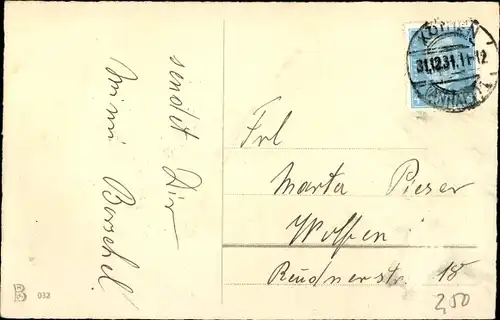 sendet Dir
Mimi Borschel.
KÖTHEN
31.12.31.11-12
(ANHALT)
Frl
Marta Pieser
Wolfen
Reudnerstr. 18
2,50
B 032